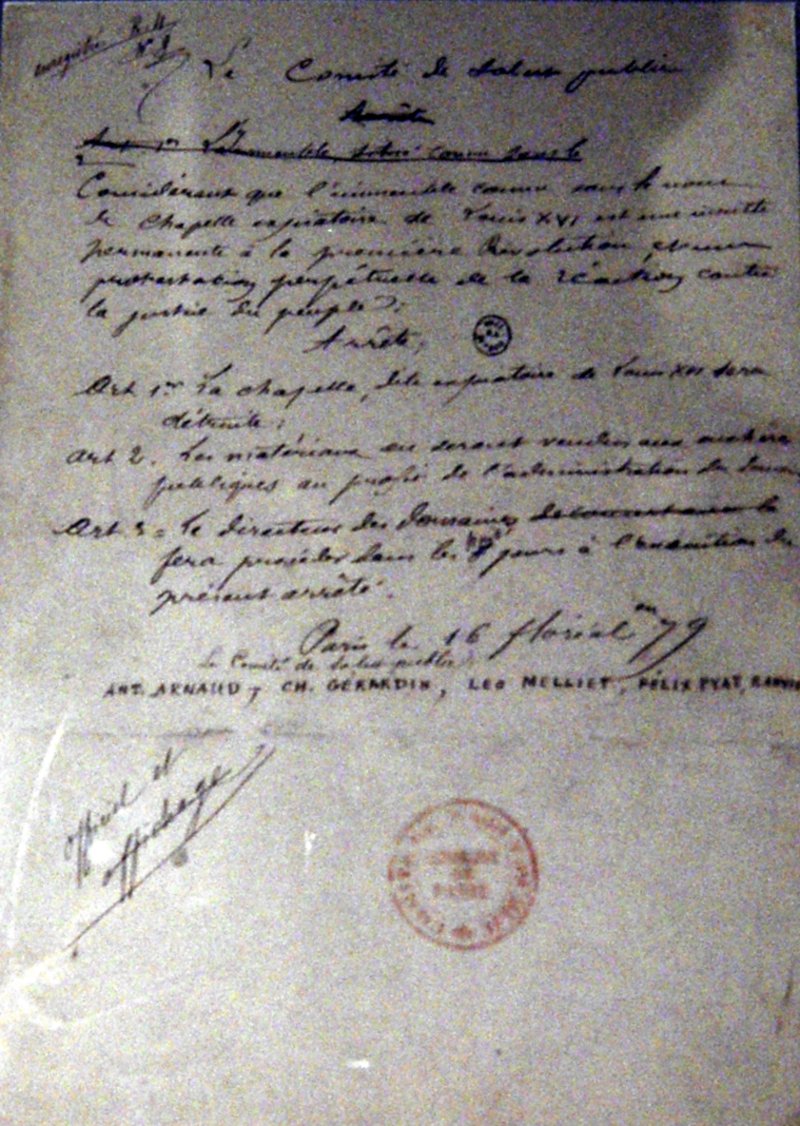 enregistré
N. 1
Le Comité de Salut public
Arrête
Art 1er L'immeuble situé connu sous le
Considérant que l'immeuble connu sous le nom
de chapelle expiatoire de Louis XVI est une insulte
permanente à la première Révolution, et une
protestation perpétuelle de la réaction contre
la justice du peuple;
Arrête,
Art 1er La chapelle, dite expiatoire de Louis XVI sera
détruite;
Art 2. Les matériaux en seront vendus aux enchères
publiques au profit de l'administration des
Art 3 = Le directeur des domaines le
fera procéder dans les 8 jours à l'exécution du
présent arrêté.
Paris le 16 floréal an 79
Le Comité de Salut public
ANT. ARNAUD, CH. GÉRARDIN, LEO MELLIET, FÉLIX PYAT, RANVIE
Officiel et
affichage
COMMUNE
DE
PARIS